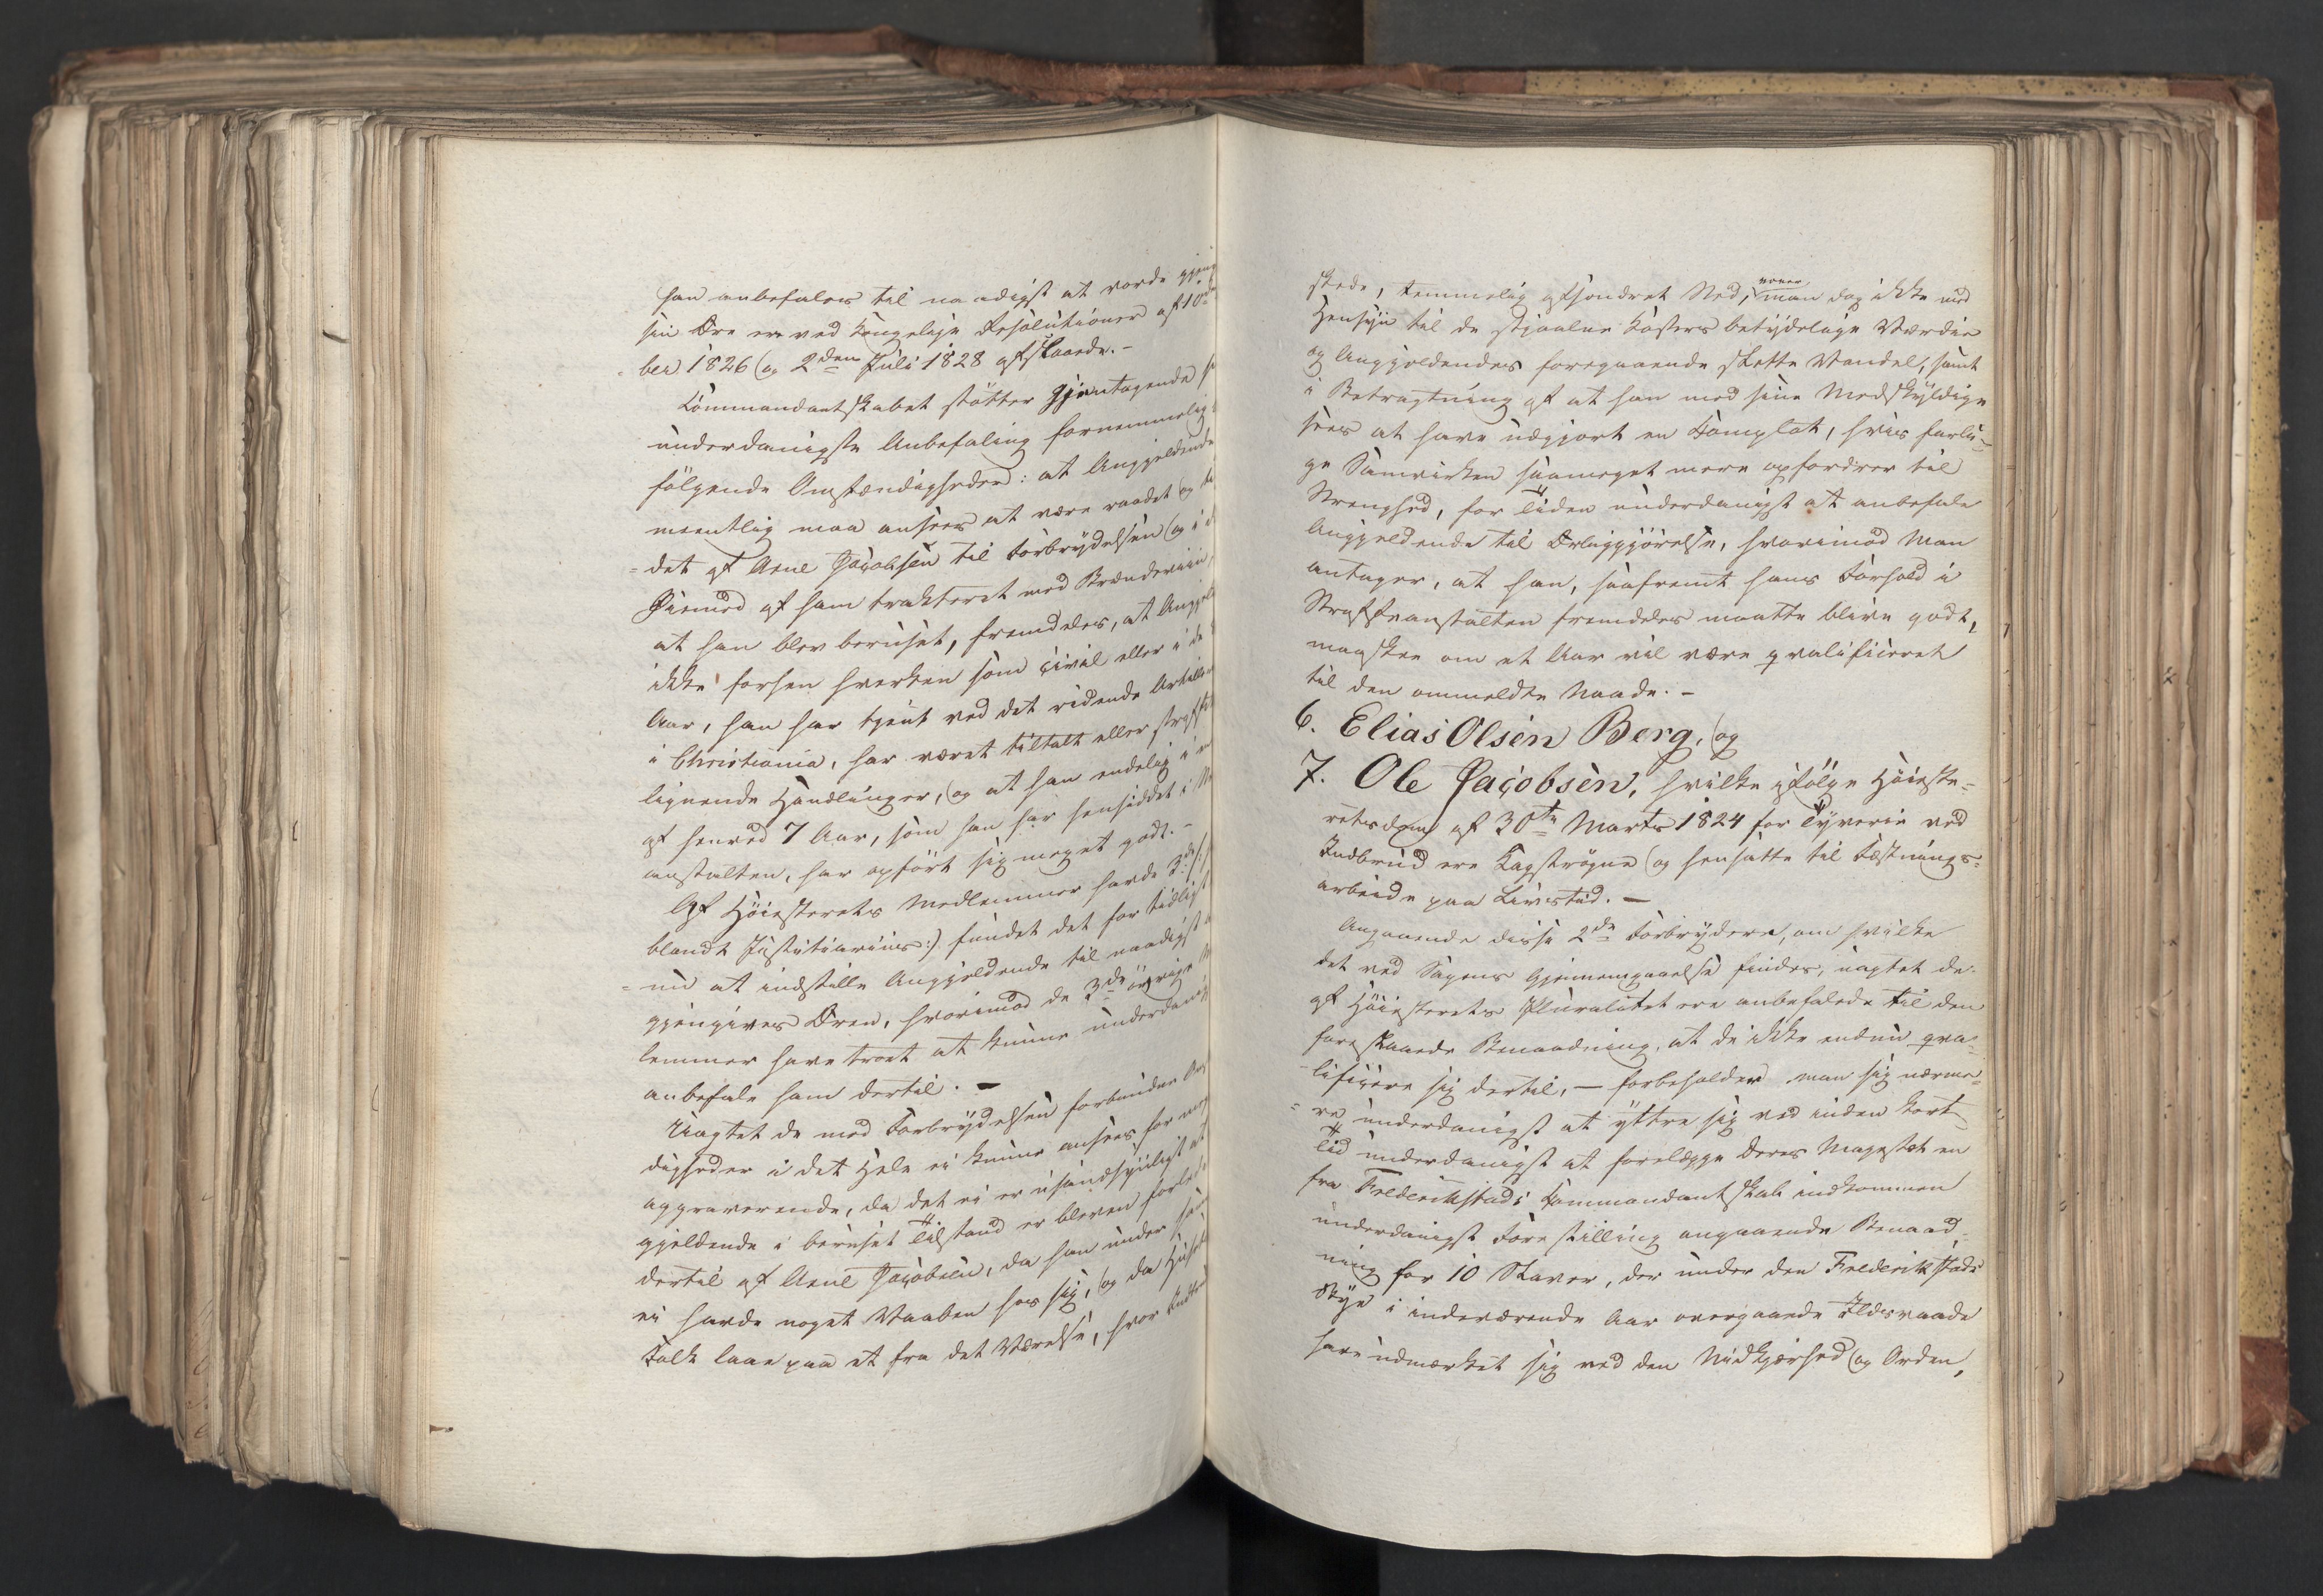 han anbefales til naadigst at vorde gjeng
sin Ære ere ved Kongelige Resolutioner af 10de
ber 1826 og 2den Juli 1828 afslaaede. -
Commandantskabet støtter gjentagende s
underdanigste Anbefaling fornemmelig
følgende Omstændigheder: at Angjeldende
meentlig maa ansees at være raadet og
det af Arne Jacobsen til Forbrydelsen og i
Øiemed af ham trakteret med Brændeviin,
at han blev beruset, fremdeles, at Angjel
ikke forhen hverken som civil eller i de
Aar, han har tjent ved det ridende Artille
i Christiania, har været tiltalt eller straffet
lignende Handlinger, og at han endelig i
af henved 7 Aar, som han har hensiddet i
anstalten, har opført sig meget godt. -
Af Høiesterets Medlemmer havde 3de
blandt Justitiarius :) fundet det for tidligt
nu at indstille Angjeldende til naadigst
gjengives Æren, hvorimod de 3de øvrige M
lemmer have troet at kunne underdanig
anbefale ham dertil. -
Uagtet de med Forbrydelsen forbundne Om
digheder i det Hele ei kunne ansees for meg
aggraverende, da det ei er usandsynligt at
gjeldende i beruset Tilstand er bleven forled
dertil af Arne Jacobsen, da han under
ei havde noget Vaaben hos sig, og da Husets
Folk laae paa et fra det Værelse, hvor Indbr
skede, temmelig afsondret Sted, vover man dog ikke med
Hensyn til de stjaalne Kosters betydelige Værdie
og Angjeldendes foregaaende slette Vandel, samt
i Betragtning af at han med sine Medskyldige
sees at have udgjort en Complot, hvis farli-
ge Samvirken saameget mere opfordrer til
Strenghed, for Tiden underdanigst at anbefale
Angjeldende til Ærliggjørelse, hvorimod Man
antager, at han, saafremt hans Forhold i
Straffeanstalten fremdeles maatte blive godt,
maaskee om et Aar vil være qvalificeret
til den ommeldte Naade. -
6. Elias Olsen Berg, og
7. Ole Jacobsen, hvilke ifølge Høieste-
retsdom af 30te Marts 1824 for Tyverie ved
Indbrud ere Kagstrøgne og hensatte til Fæstnings-
arbeide paa Livstid. -
Angaaende disse 2de Forbrydere, om hvilke
det ved Sagens Gjennemgaaelse findes, uagtet de
af Høiesterets Pluralitet ere anbefalede til den
foreslaaede Benaadning, at de ikke endnu qva-
lificere sig dertil, - forbeholder man sig nærme-
re underdanigst at yttre sig ved inden kort
Tid underdanigst at forelægge Deres Majestæt en
fra Frederikstads Commandantskab indkommen
underdanigst Forestilling angaaende Benaad-
ning for 10 Slaver, der under den Frederikstads
Bye i indeværende Aar overgaaede Ildsvaade
have udmærket sig ved den Nidkjærhed og Orden,